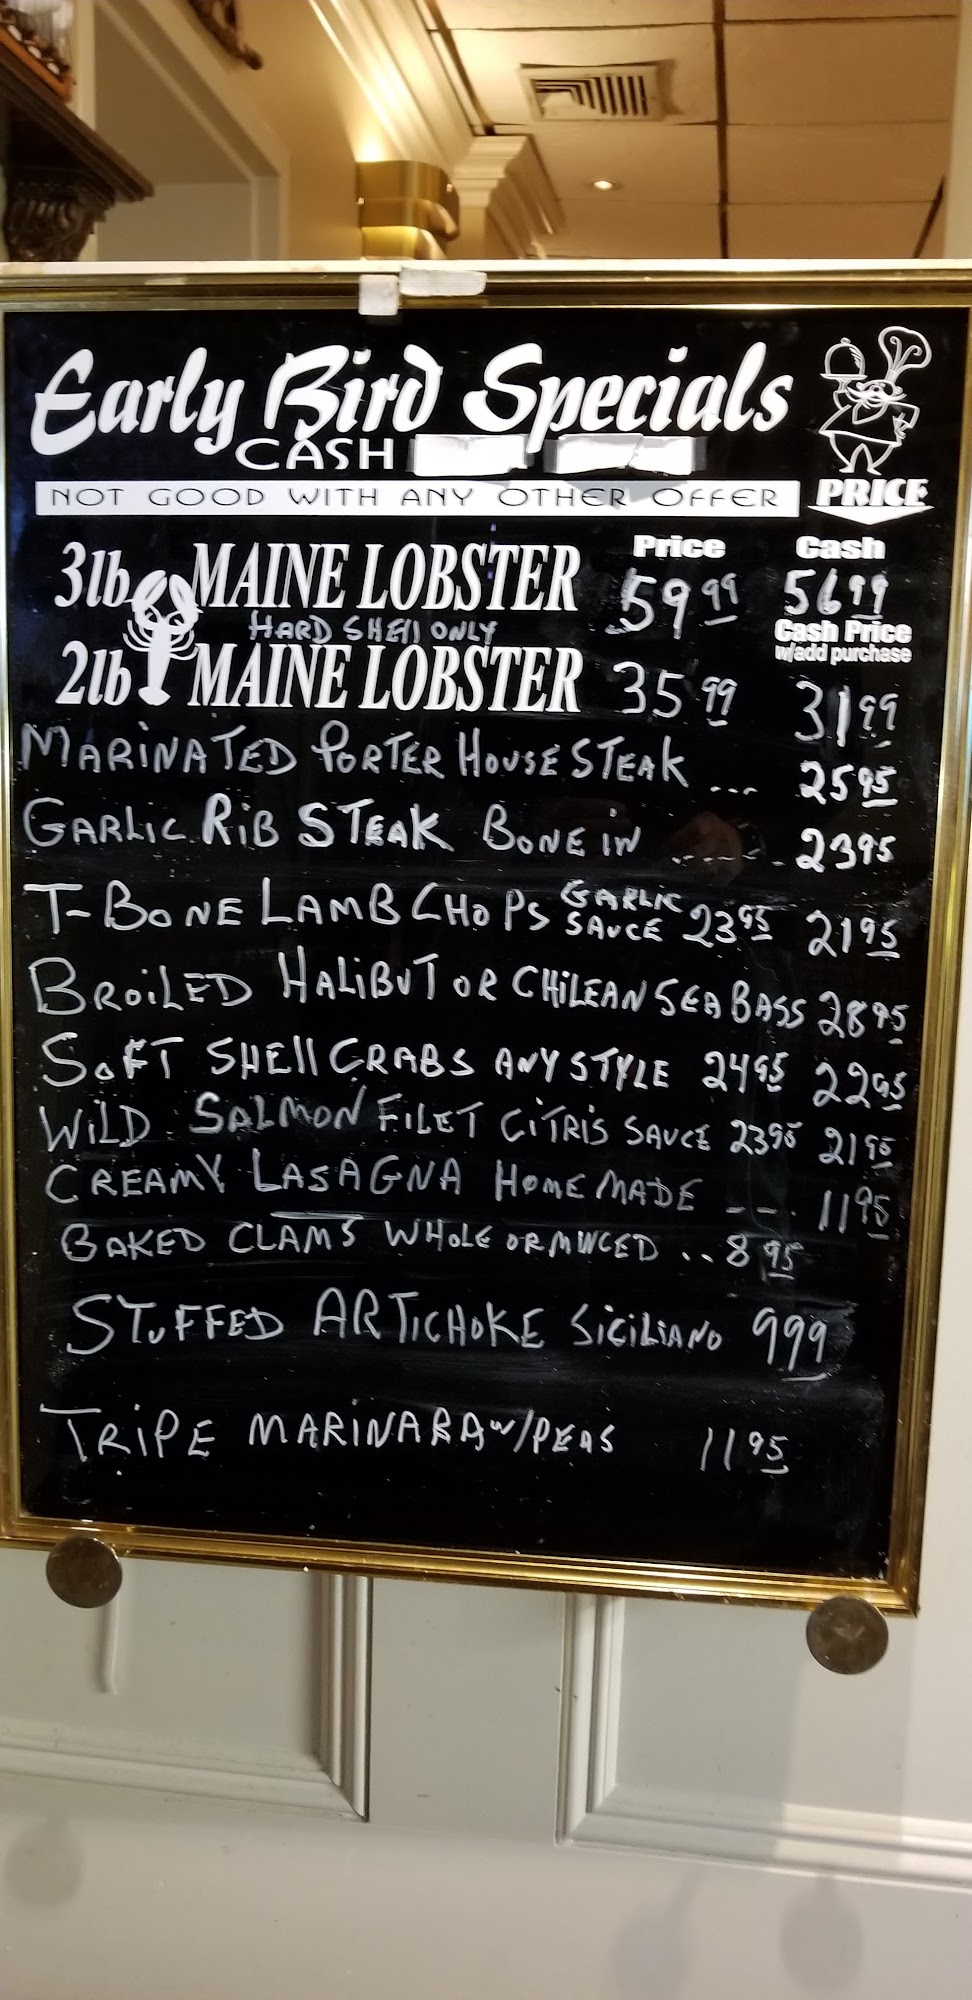 Early Bird Specials
CASH
NOT GOOD WITH ANY OTHER OFFER PRICE
Price Cash
3lb MAINE LOBSTER 59 99 56 99
HARD SHEll ONLY Cash Price
w/add purchase
2lb MAINE LOBSTER 35 99 31 99
MARINATED PORTER HOUSE STEAK ... 25 95
GARLIC RIB STEAK BONE IN ...... 23 95
T-BONE LAMB CHOPS GARLIC SAUCE 23 95 21 95
BROILED HALIBUT OR CHILEAN SEA BASS 28 95
SOFT SHEll CRABS ANY STYLE 24 95 22 95
WILD SALMON FILET CITRIS SAUCE 23 95 21 95
CREAMY LASAGNA HOME MADE --. 11 95
BAKED CLAMS WHOLE OR MINCED .. 8 95
STUFFED ARTICHOKE SICILIANO 9 99
TRIPE MARINARA w/PEAS 11 95